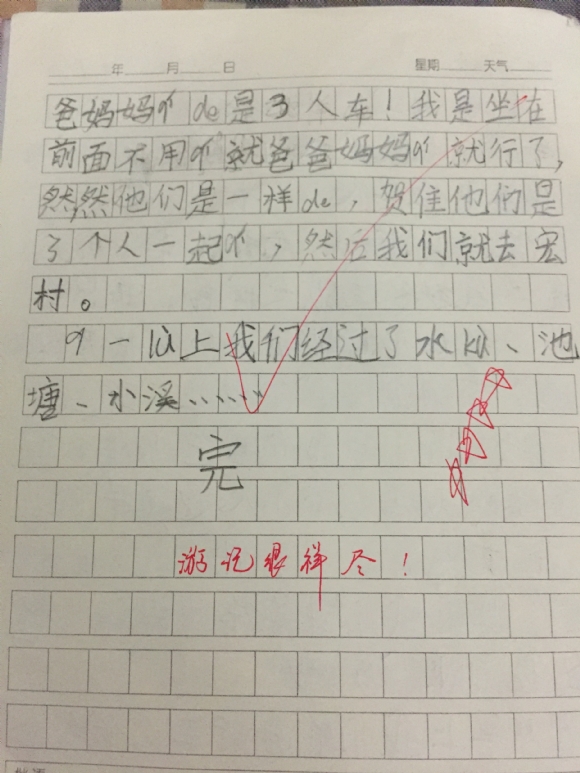 年 月 日 星期 天气
爸妈妈qí de是3人车！我是坐在
前面不用qí就爸爸妈妈qí就行了，
然然他们是一样de，贺佳他们是
3个人一起qí，然后我们就去宏
村。
qí一lù上我们经过了水kù、池
塘、小溪……
完
游记很祥尽！